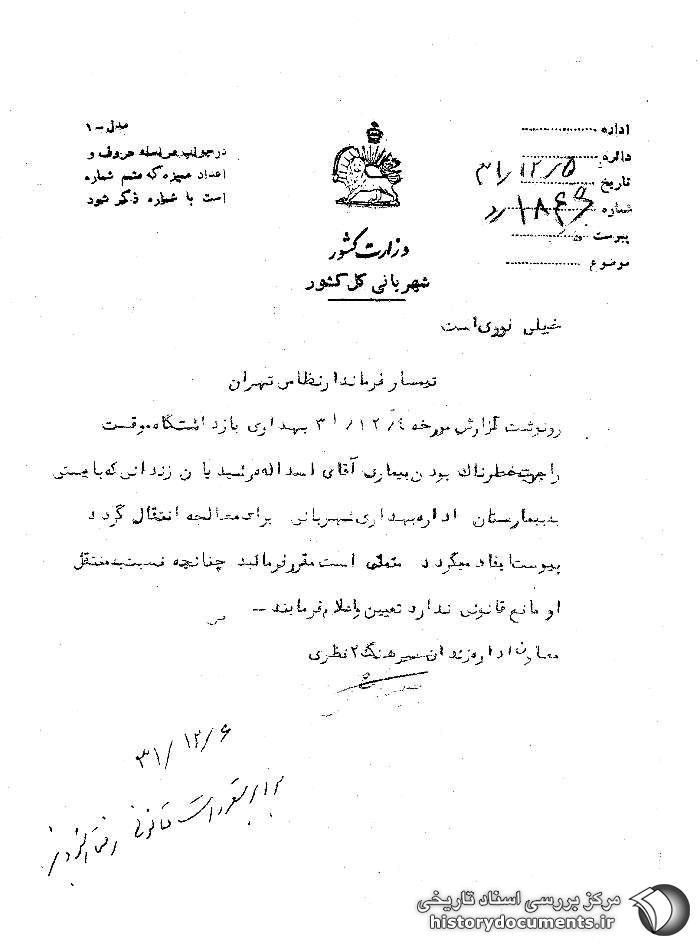 مدل - ۱
در جواب مراسله حروف و
اعداد ممیزه که متمم شماره
است با شماره ذکر شود
وزارت کشور
شهربانی کل کشور
اداره
دائره
تاریخ ۳۱/۱۲/۵
شماره
پیوست
موضوع
خیلی فوری است
تیمسار فرماندار نظامی تهران
رونوشت گزارش مورخه ۳۱/۱۲/۴ بهداری بازداشتگاه موقت
را جهت خطرناک بودن بیماری آقای اسداله رشیدیان زندانی که بایستی
به بیمارستان اداره بهداری شهربانی برای معالجه انتقال گردد
پیوست ایفاد میگردد متمنی است مقرر فرمائید چنانچه نسبت به منتقل
او مانع قانونی ندارد تعیین و اعلام فرمایند --
معاون اداره زندان سرهنگ ۲ نظری
۳۱/۱۲/۶
برابر مقررات قانونی رفتار
مرکز بررسی اسناد تاریخی
historydocuments.ir